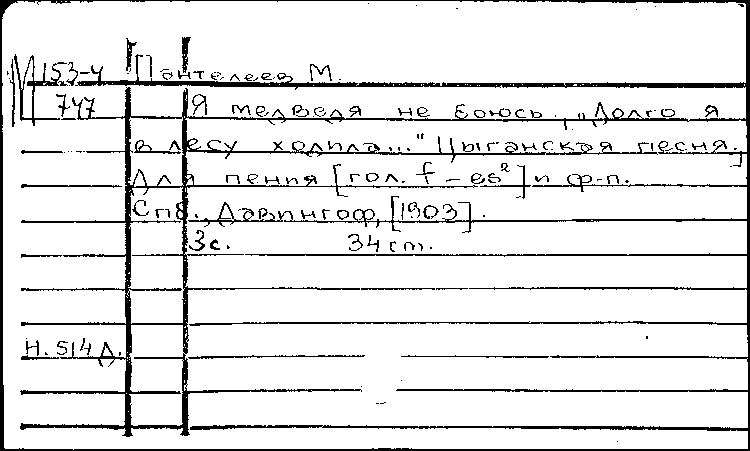 М 153-4 Пантелеев, М.
747 Я медведя не боюсь. „Долго я
в лесу ходила..." Цыганская песня.
Для пения [гол. f – es²] и ф-п.
Спб., Давингоф, [1903].
3с. 34 cm.
Н. 514 Д.